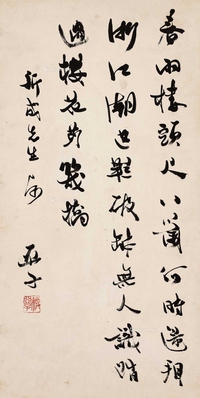 春雨樓頭尺八簫何時還
浙江潮芒鞋破鉢無人識踏
過櫻花第幾橋
新成先生
亞子